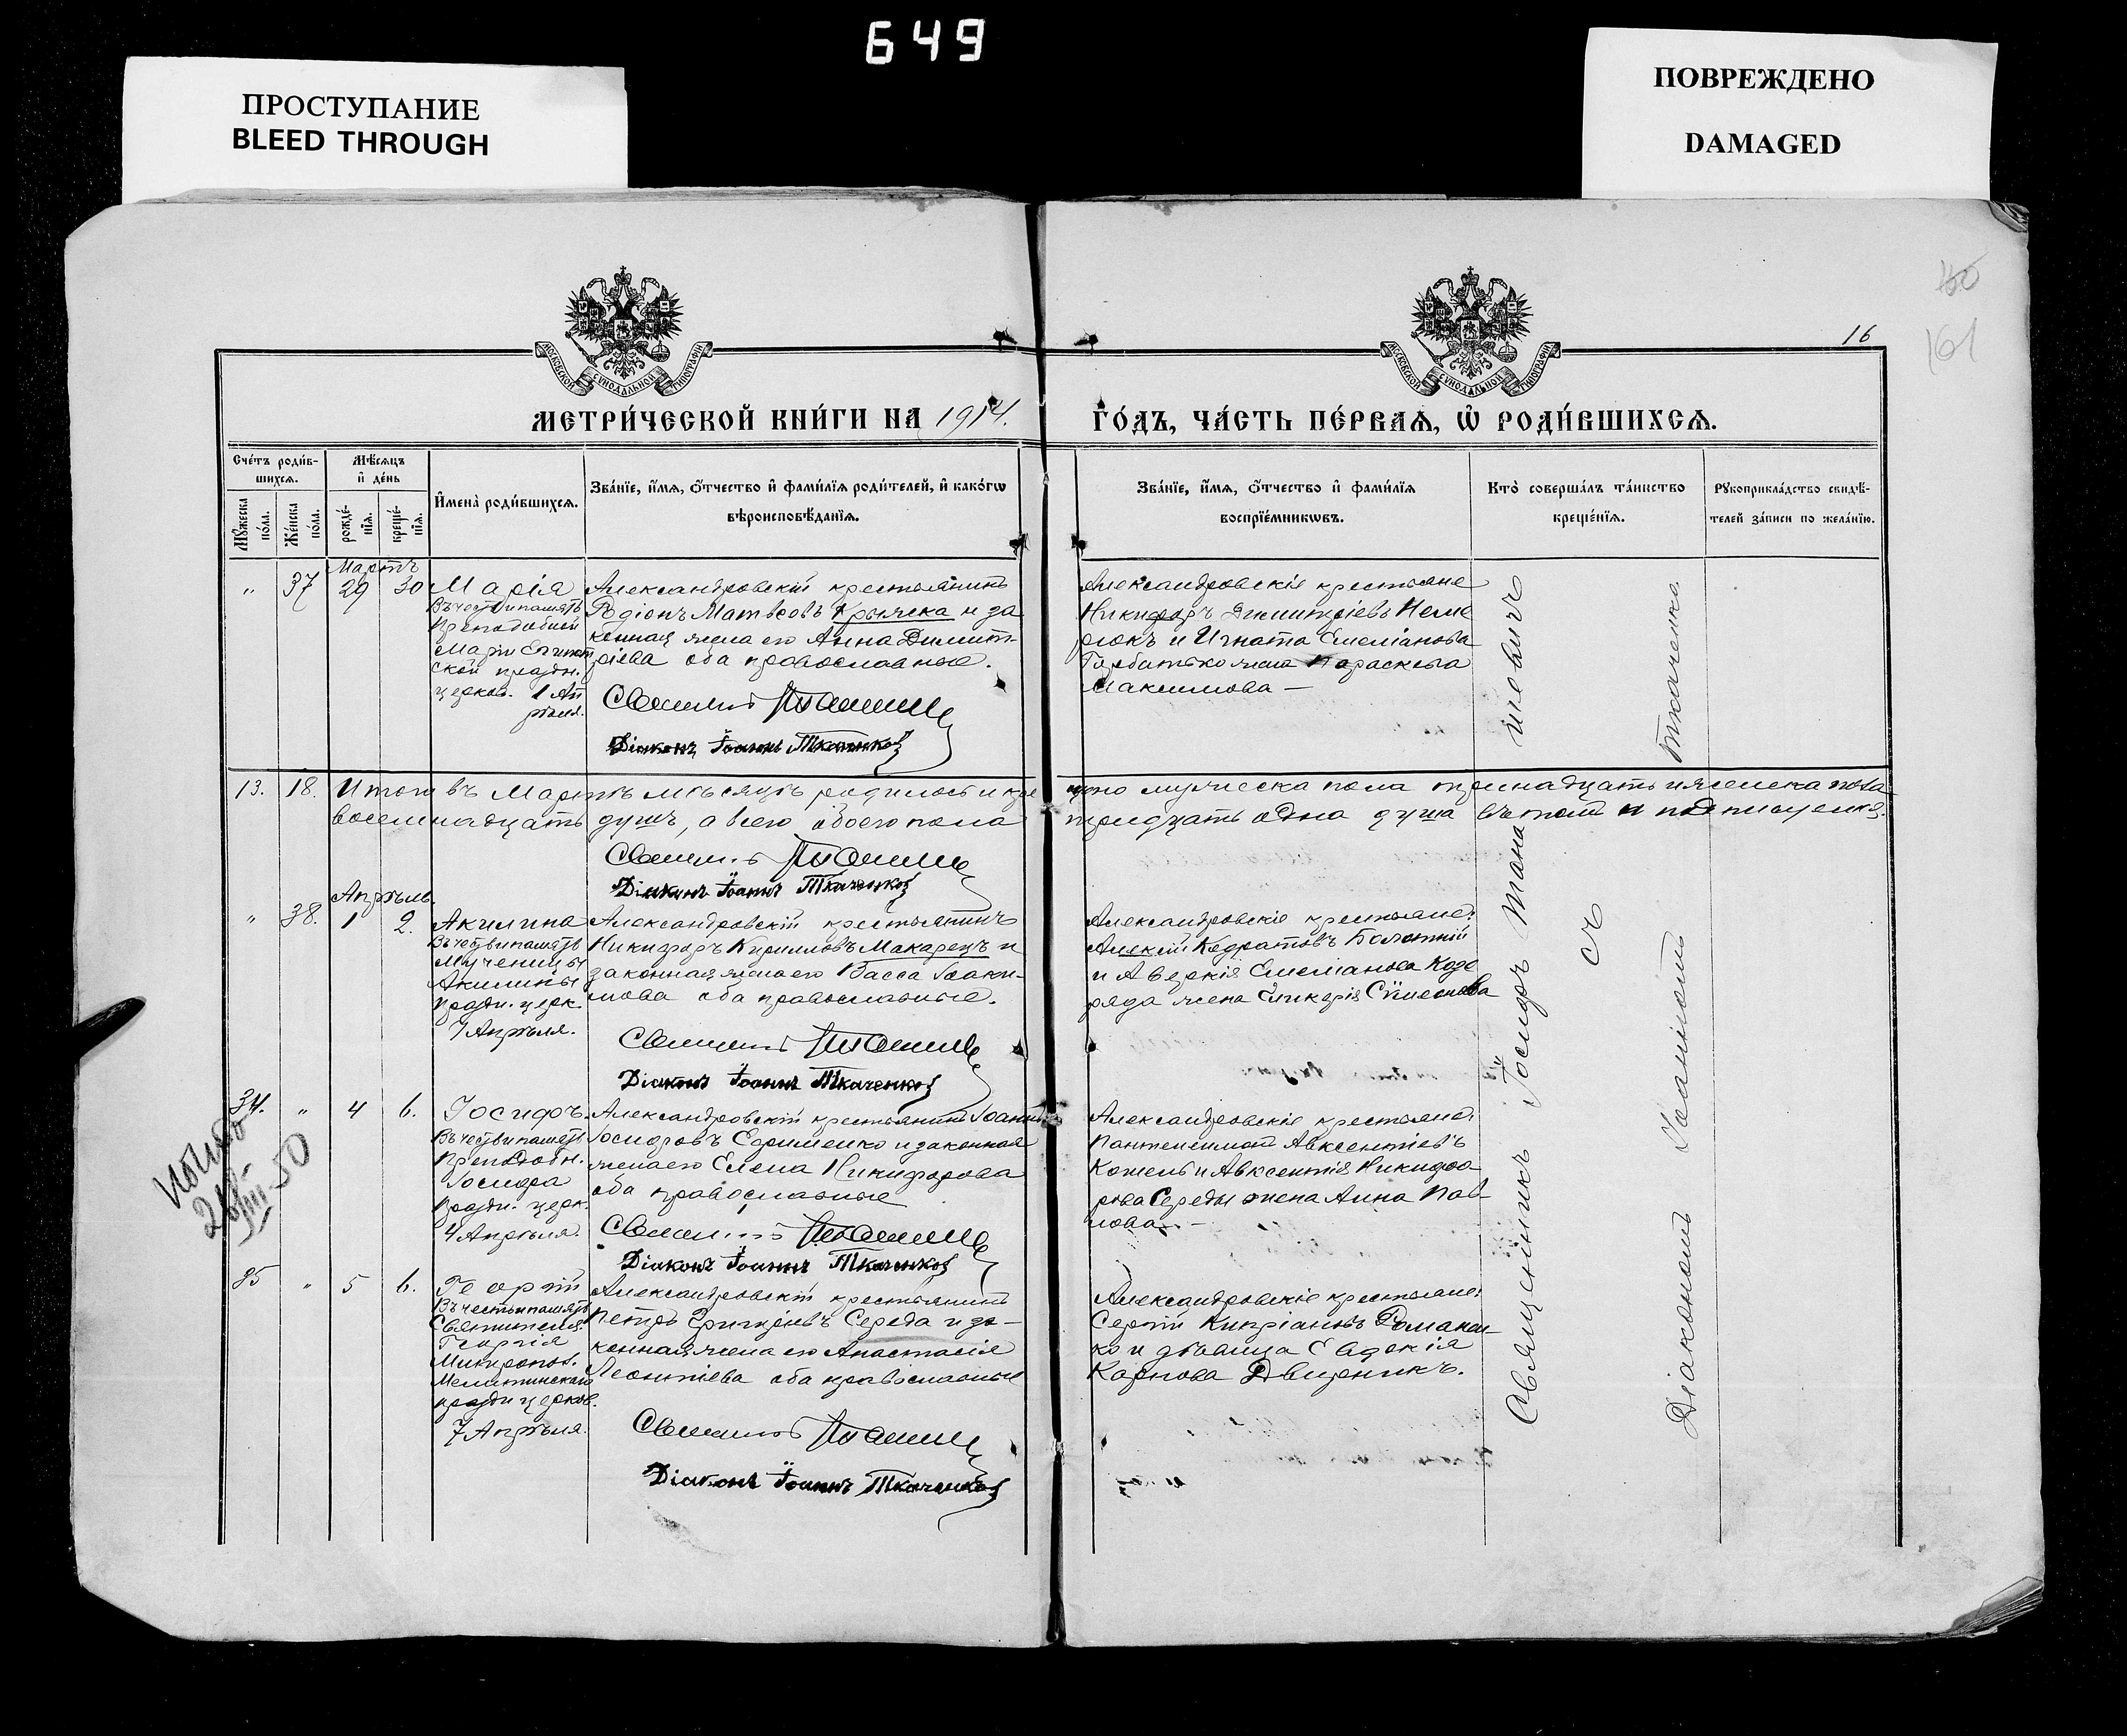 649
ПРОСТУПАНИЕ
BLEED THROUGH
ПОВРЕЖДЕНО
DAMAGED
16
161
МОСКОВСКОЙ СѴНОДАЛЬНОЙ ТИПОГРАФІИ
МОСКОВСКОЙ СѴНОДАЛЬНОЙ ТИПОГРАФІИ
МЕТРИ́ЧЕСКОЙ КНИ́ГИ НА 1914.
ГО́ДЪ, ЧА́СТЬ ПЕ́РВАѦ, Ѡ҆ РОДИ́ВШИХСѦ.
Сче́тъ роди́в-
шихсѧ.
Мꙋ́жеска по́ла.
Же́нска по́ла.
Мѣ́сѧцъ
и҆ де́нь
рожде́-
нїѧ.
креще́-
нїѧ.
И҆мена̀ роди́вшихсѧ.
Зва́нїе, и҆́мѧ, ѻ҆́тчество и҆ фами́лїѧ роди́телей, и҆ како́гѡ
вѣроисповѣ́данїѧ.
Зва́нїе, и҆́мѧ, ѻ҆́тчество и҆ фами́лїѧ
воспрїе́мникѡвъ.
Кто̀ соверша́лъ та́инство
креще́нїѧ.
Рꙋкоприкла́дство свидѣ́-
телей за́писи по жела́нїю.
Мартъ
" 37 29 30
Марія
Въ честь и память
Преподобной
Маріи Египет
ской праздн.
церков. 1 Ап
рѣля.
Александровскій крестьянинъ
Родіонъ Матвѣевъ Крыжска и за
конная жена его Анна Димит-
ріева оба православные.
Діаконъ Іоаннъ Ткаченко
Александровскіе крестьяне
Никифоръ Димитріевъ Неме
рюкъ и Игната Емеліанова
Горбатько жена Параскева
Максимова —
13. 18. Итого въ Мартѣ мѣсяцѣ родилось и кре
щено мужеска пола тринадцать и женска пола
восемнадцать душъ, а всего обоего пола
тридцать одна душа въ томъ и подписуемся.
Діаконъ Іоаннъ Ткаченко
Апрѣль.
" 38. 1 2.
Акилина
Въ честь и память
Мученицы
Акилины
праздн. церк.
7 Апрѣля.
Александровскій крестьянинъ
Никифоръ Кирилловъ Макарецъ и
законная жена его Васса Іоаки-
мова оба православные.
Діаконъ Іоаннъ Ткаченко
Александровскіе крестьяне:
Алексій Кодратовъ Болотній
и Аверкія Емеліанова Коде
ряда жена Гликерія Сѵмеонова
34. " 4 6.
Іосифъ.
Въ честь и память
Преподобн.
Іосифа
праздн. церк.
4 Апрѣля.
Александровскій крестьянинъ Іоаннъ
Іосифовъ Ефименко и законная
жена его Елена Никифорова
оба православные
Діаконъ Іоаннъ Ткаченко
Александровскіе крестьяне:
Пантелеимонъ Авксентіевъ
Кошель и Авксентія Никифо-
рова Середы жена Анна Пав-
лова. —
35 " 5 6.
Георгій
Въ честь и память
Святителя
Георгія
Митропол.
Мелитинскаго
праздн. церков.
7 Апрѣля.
Александровскій крестьянинъ
Петръ Григоріевъ Середа и за-
конная жена его Анастасія
Леонтіева оба православные
Діаконъ Іоаннъ Ткаченко
Александровскіе крестьяне:
Сергій Кипріановъ Романен-
ко и дѣвица Евдокія
Карпова Двирникъ.
Священникъ Іосифъ Тана
шевичъ
съ
Діакономъ Іоанномъ
Ткаченко